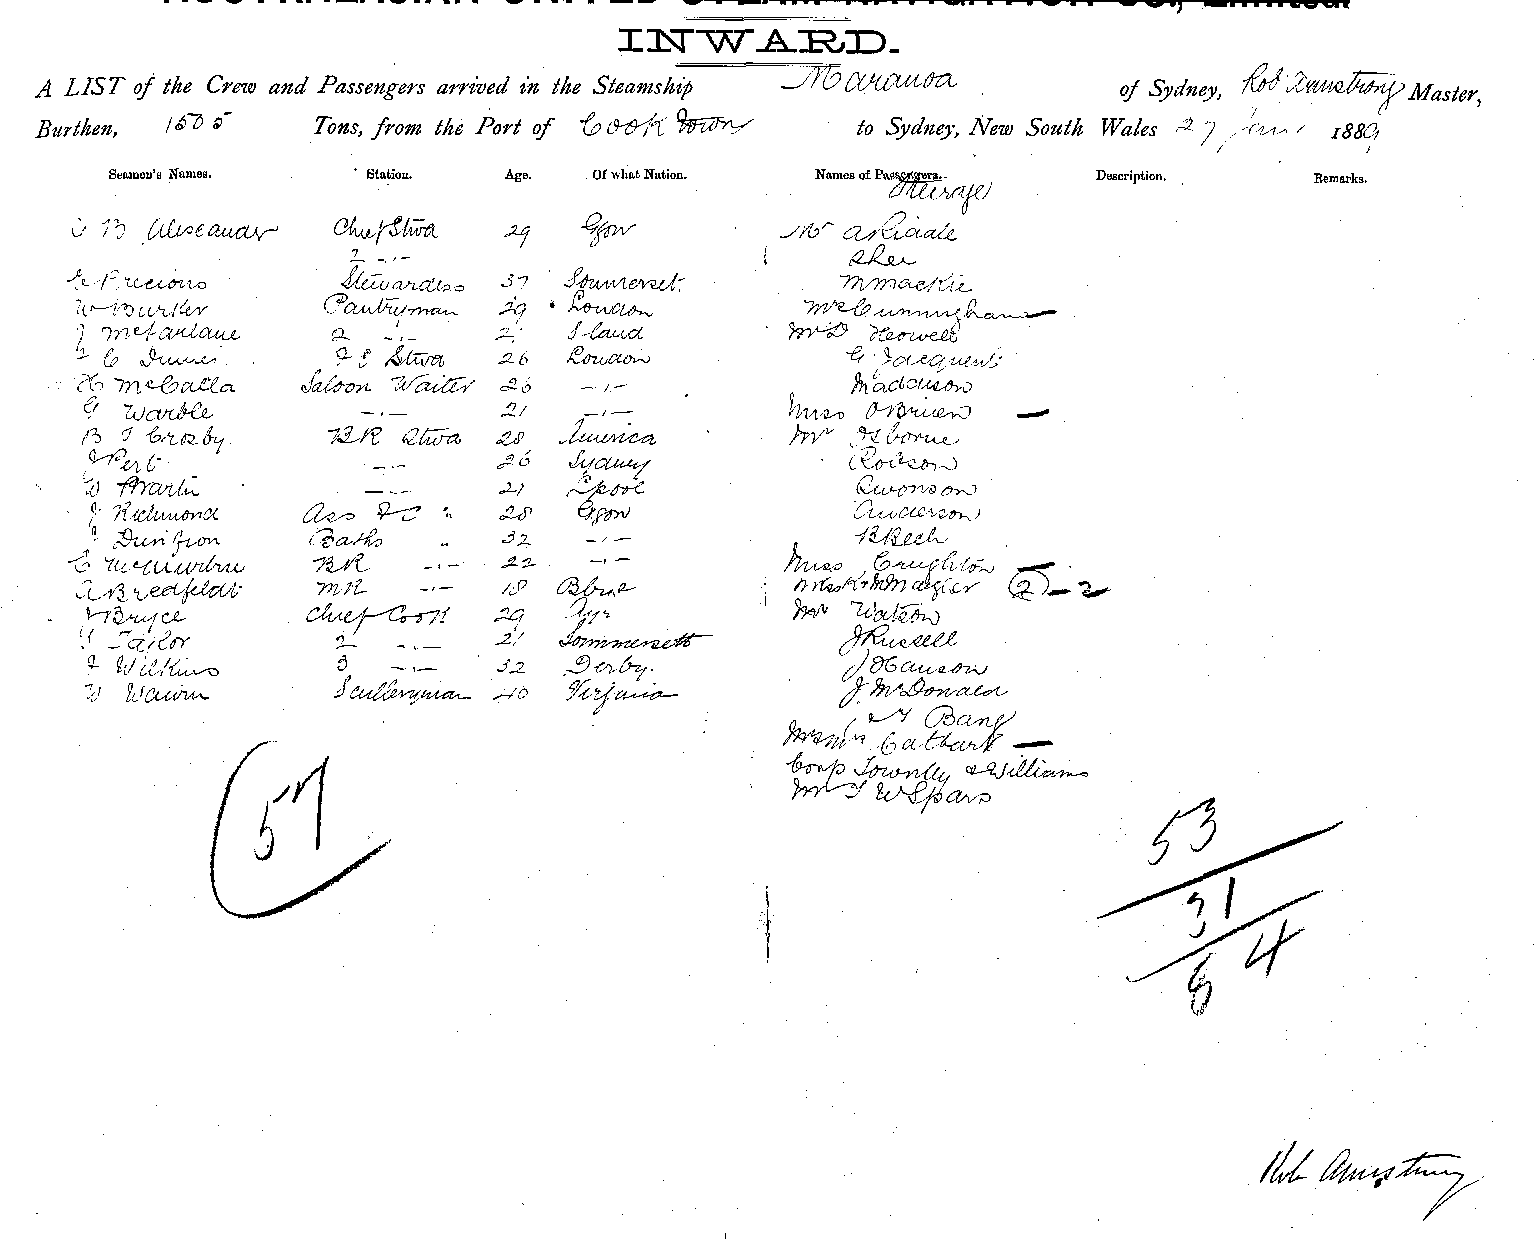 AUSTRALASIAN UNITED STEAM NAVIGATION CO., Limited.
INWARD.
A LIST of the Crew and Passengers arrived in the Steamship Maranoa of Sydney, Rob Armstrong Master,
Burthen, 1505 Tons, from the Port of Cooktown to Sydney, New South Wales 27 Jany 1889
Seamen's Names. Station. Age. Of what Nation. Names of Passengers. Description. Remarks.
Steerage
B Alexander Chief Stwd 29 Ggow Mr Riddle
2 -.-
Precious Stewardess 37 Sommerset. M Mackie
W Burker Pantryman 29 London Mrs Cunningham —
J McFarlane 2 -.- 2 Island Mr D Howell
C Stwd 26 London G
H McCalla Saloon Waiter 26 -.- Maddison
G Warble -.- 21 -.- Miss O'Brien —
B J Crosby. BR Stwd 28 America Mr Osborne
J Pert -.- 26 Sydney Robson
W Martin -.- 21 Lpool Swonson
J Richmond Ass FC " 28 Ggow Anderson
Baths " 32 -.-
C BR -.- 22 -.- Miss Creighton —
A Bredfeldt MR -.- 18 Bbne (2) — 2
J Bryce Chief Cook 29 Ayr Mr Watson
G Taylor 2 -.- 21 Sommersett J Russell
J Wilkins 3 -.- 32 Derby. J Hanson
W Sculleryman 40 Virginia J. McDonald
Bang
—
Corp Townlly & Williams
Mr T W Spars
57
53
31
84
Rob Armstrong